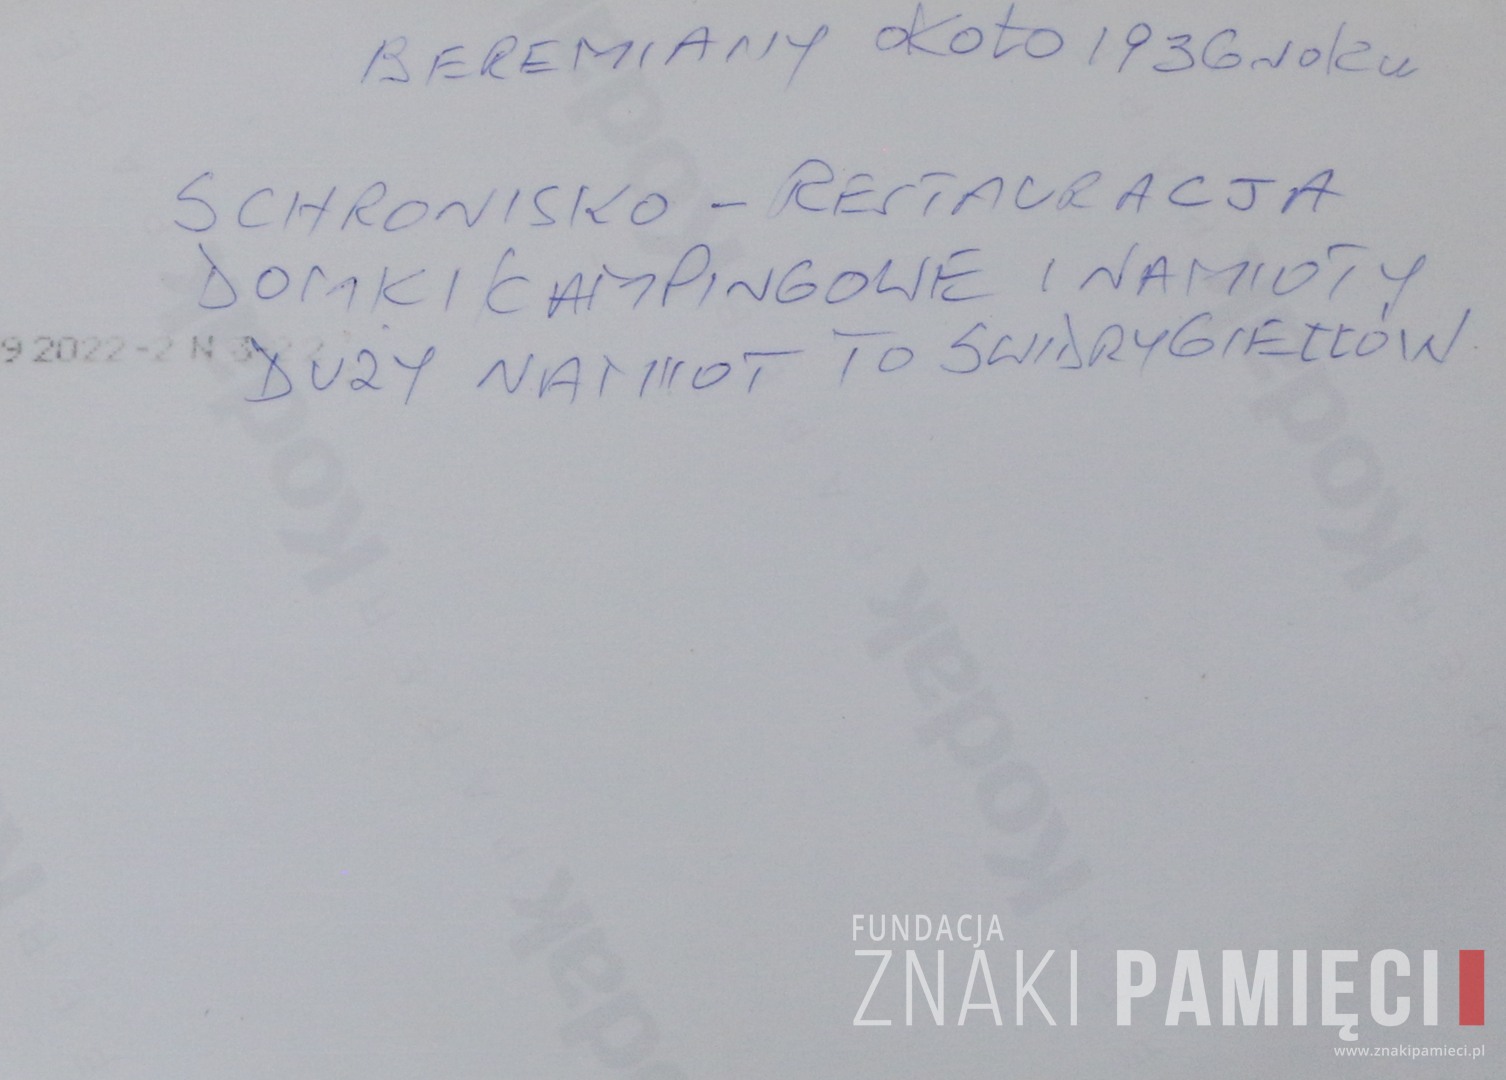 BEREMIANY około 1936 roku
SCHRONISKO – RESTAURACJA
DOMKI KAMPINGOWE I NAMIOTY
9 2022 -2 N 3
DUZY NAMIOT TO SWIDRYGIEŁŁÓW
Kodak
Kodak
Kodak
Kodak
FUNDACJA
ZNAKI PAMIĘCI
www.znakipamieci.pl